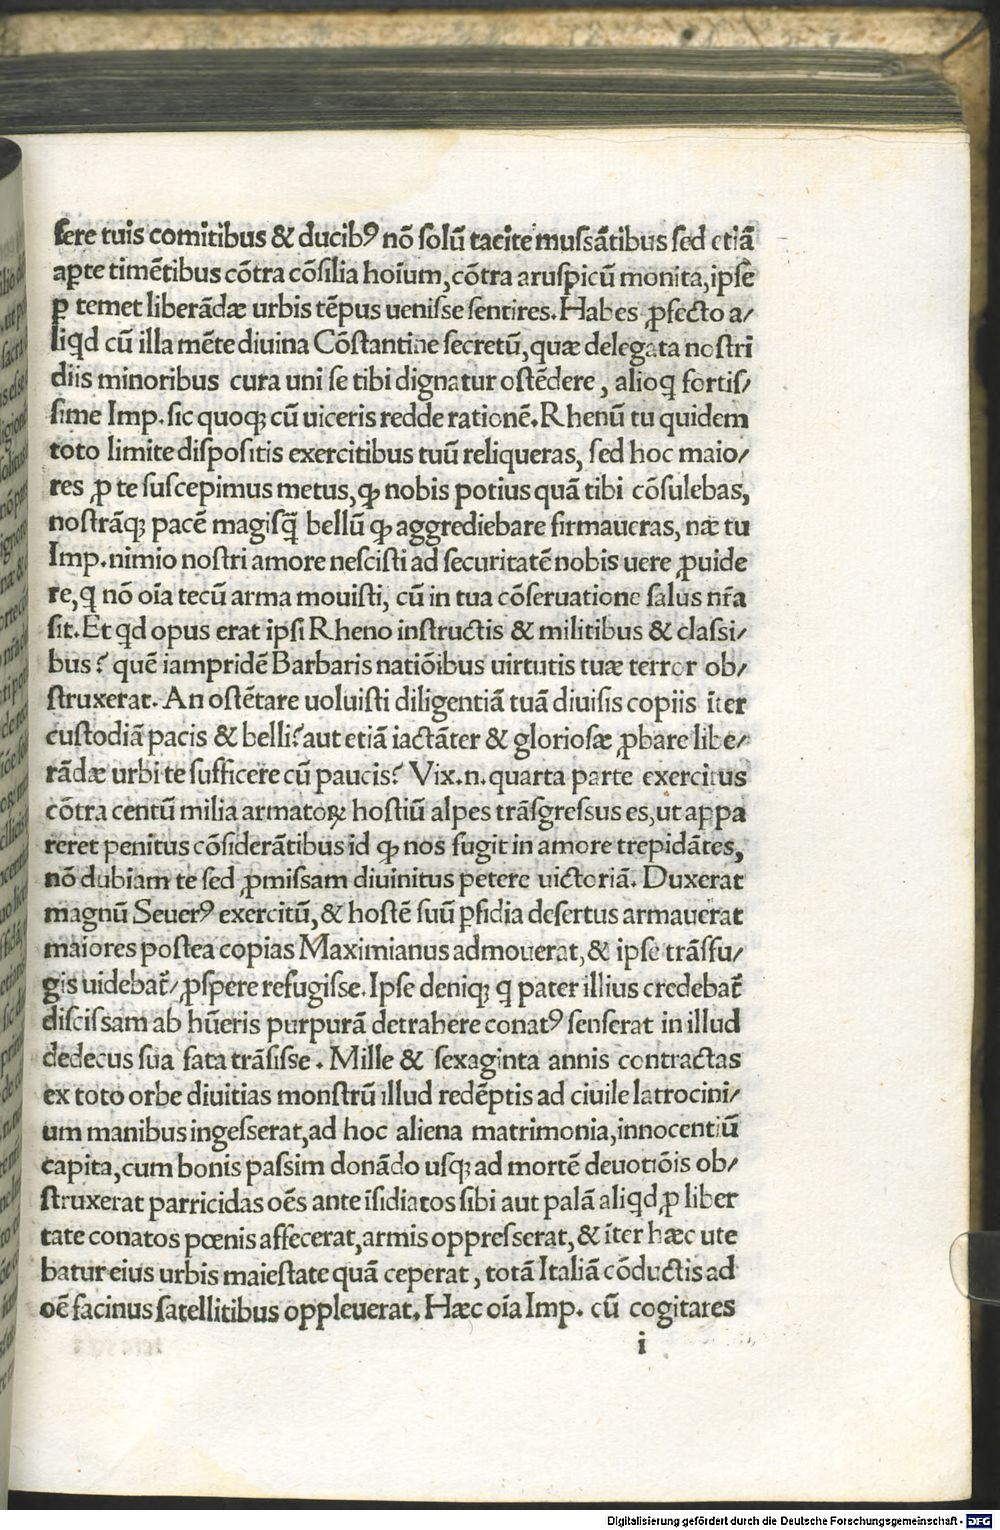 fere tuis comitibus & ducibꝰ nō ſolū tacite muſsātibus ſed etiā
aꝑte timētibus cōtra cōſilia hoīum, cōtra aruſpicū monita, ipſe
ꝑ temet liberādæ urbis tēpus ueniſse ſentires. Habes ꝓfecto a/
liqd cū illa mēte diuina Cōſtantine ſecretū, quæ delegata noſtri
diis minoribus cura uni ſe tibi dignatur oſtēdere, alioq fortiſ/
ſime Imp. ſic quoqꝫ cū uiceris redde rationē. Rhenū tu quidem
toto limite diſpoſitis exercitibus tuū reliqueras, ſed hoc maio/
res ꝓ te ſuſcepimus metus, ꝙ nobis potius quā tibi cōſulebas,
noſtrāqꝫ pacē magiſq̄ bellū ꝙ aggrediebare firmaueras, næ tu
Imp. nimio noſtri amore neſciſti ad ſecuritatē nobis uere ꝓuide
re, q nō oīa tecū arma mouiſti, cū in tua cōſeruatione ſalus nr̄a
ſit. Et qd opus erat ipſi Rheno inſtructis & militibus & claſsi/
bus? quē iampridē Barbaris natiōibus uirtutis tuæ terror ob/
ſtruxerat. An oſtētare uoluiſti diligentiā tuā diuiſis copiis īter
cuſtodiā pacis & belli? aut etiā iactāter & glorioſæ ꝓbare libe/
rādæ urbi te ſufficere cū paucis? Vix.n. quarta parte exercitus
cōtra centū milia armatoꝝ hoſtiū alpes trāſgreſsus es, ut appa
reret penitus cōſiderātibus id ꝙ nos fugit in amore trepidātes,
nō dubiam te ſed ꝓmiſsam diuinitus petere uictoriā. Duxerat
magnū Seuerꝰ exercitū, & hoſtē ſuū ꝑfidia deſertus armauerat
maiores poſtea copias Maximianus admouerat, & ipſe trāſfu/
gis uidebat̄/ ꝓſpere refugiſse. Ipſe deniqꝫ q pater illius credebat̄
diſciſsam ab hūeris purpurā detrahere conatꝰ ſenſerat in illud
dedecus ſua fata trāſiſse. Mille & ſexaginta annis contractas
ex toto orbe diuitias monſtrū illud redēptis ad ciuile latrocini/
um manibus ingeſserat, ad hoc aliena matrimonia, innocentiū
capita, cum bonis paſsim donādo uſqꝫ ad mortē deuotiōis ob/
ſtruxerat parricidas oēs ante īſidiatos ſibi aut palā aliqd ꝓ liber
tate conatos pœnis affecerat, armis oppreſserat, & īter hæc ute
batur eius urbis maieſtate quā ceperat, totā Italiā cōductis ad
oē facinus ſatellitibus oppleuerat. Hæc oīa Imp. cū cogitares
i
Digitalisierung gefördert durch die Deutsche Forschungsgemeinschaft - DFG